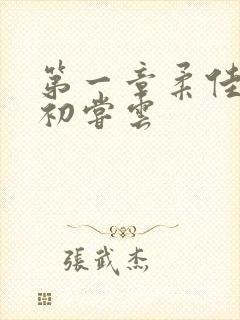 第一章柔佳
初嘗雲
張武杰